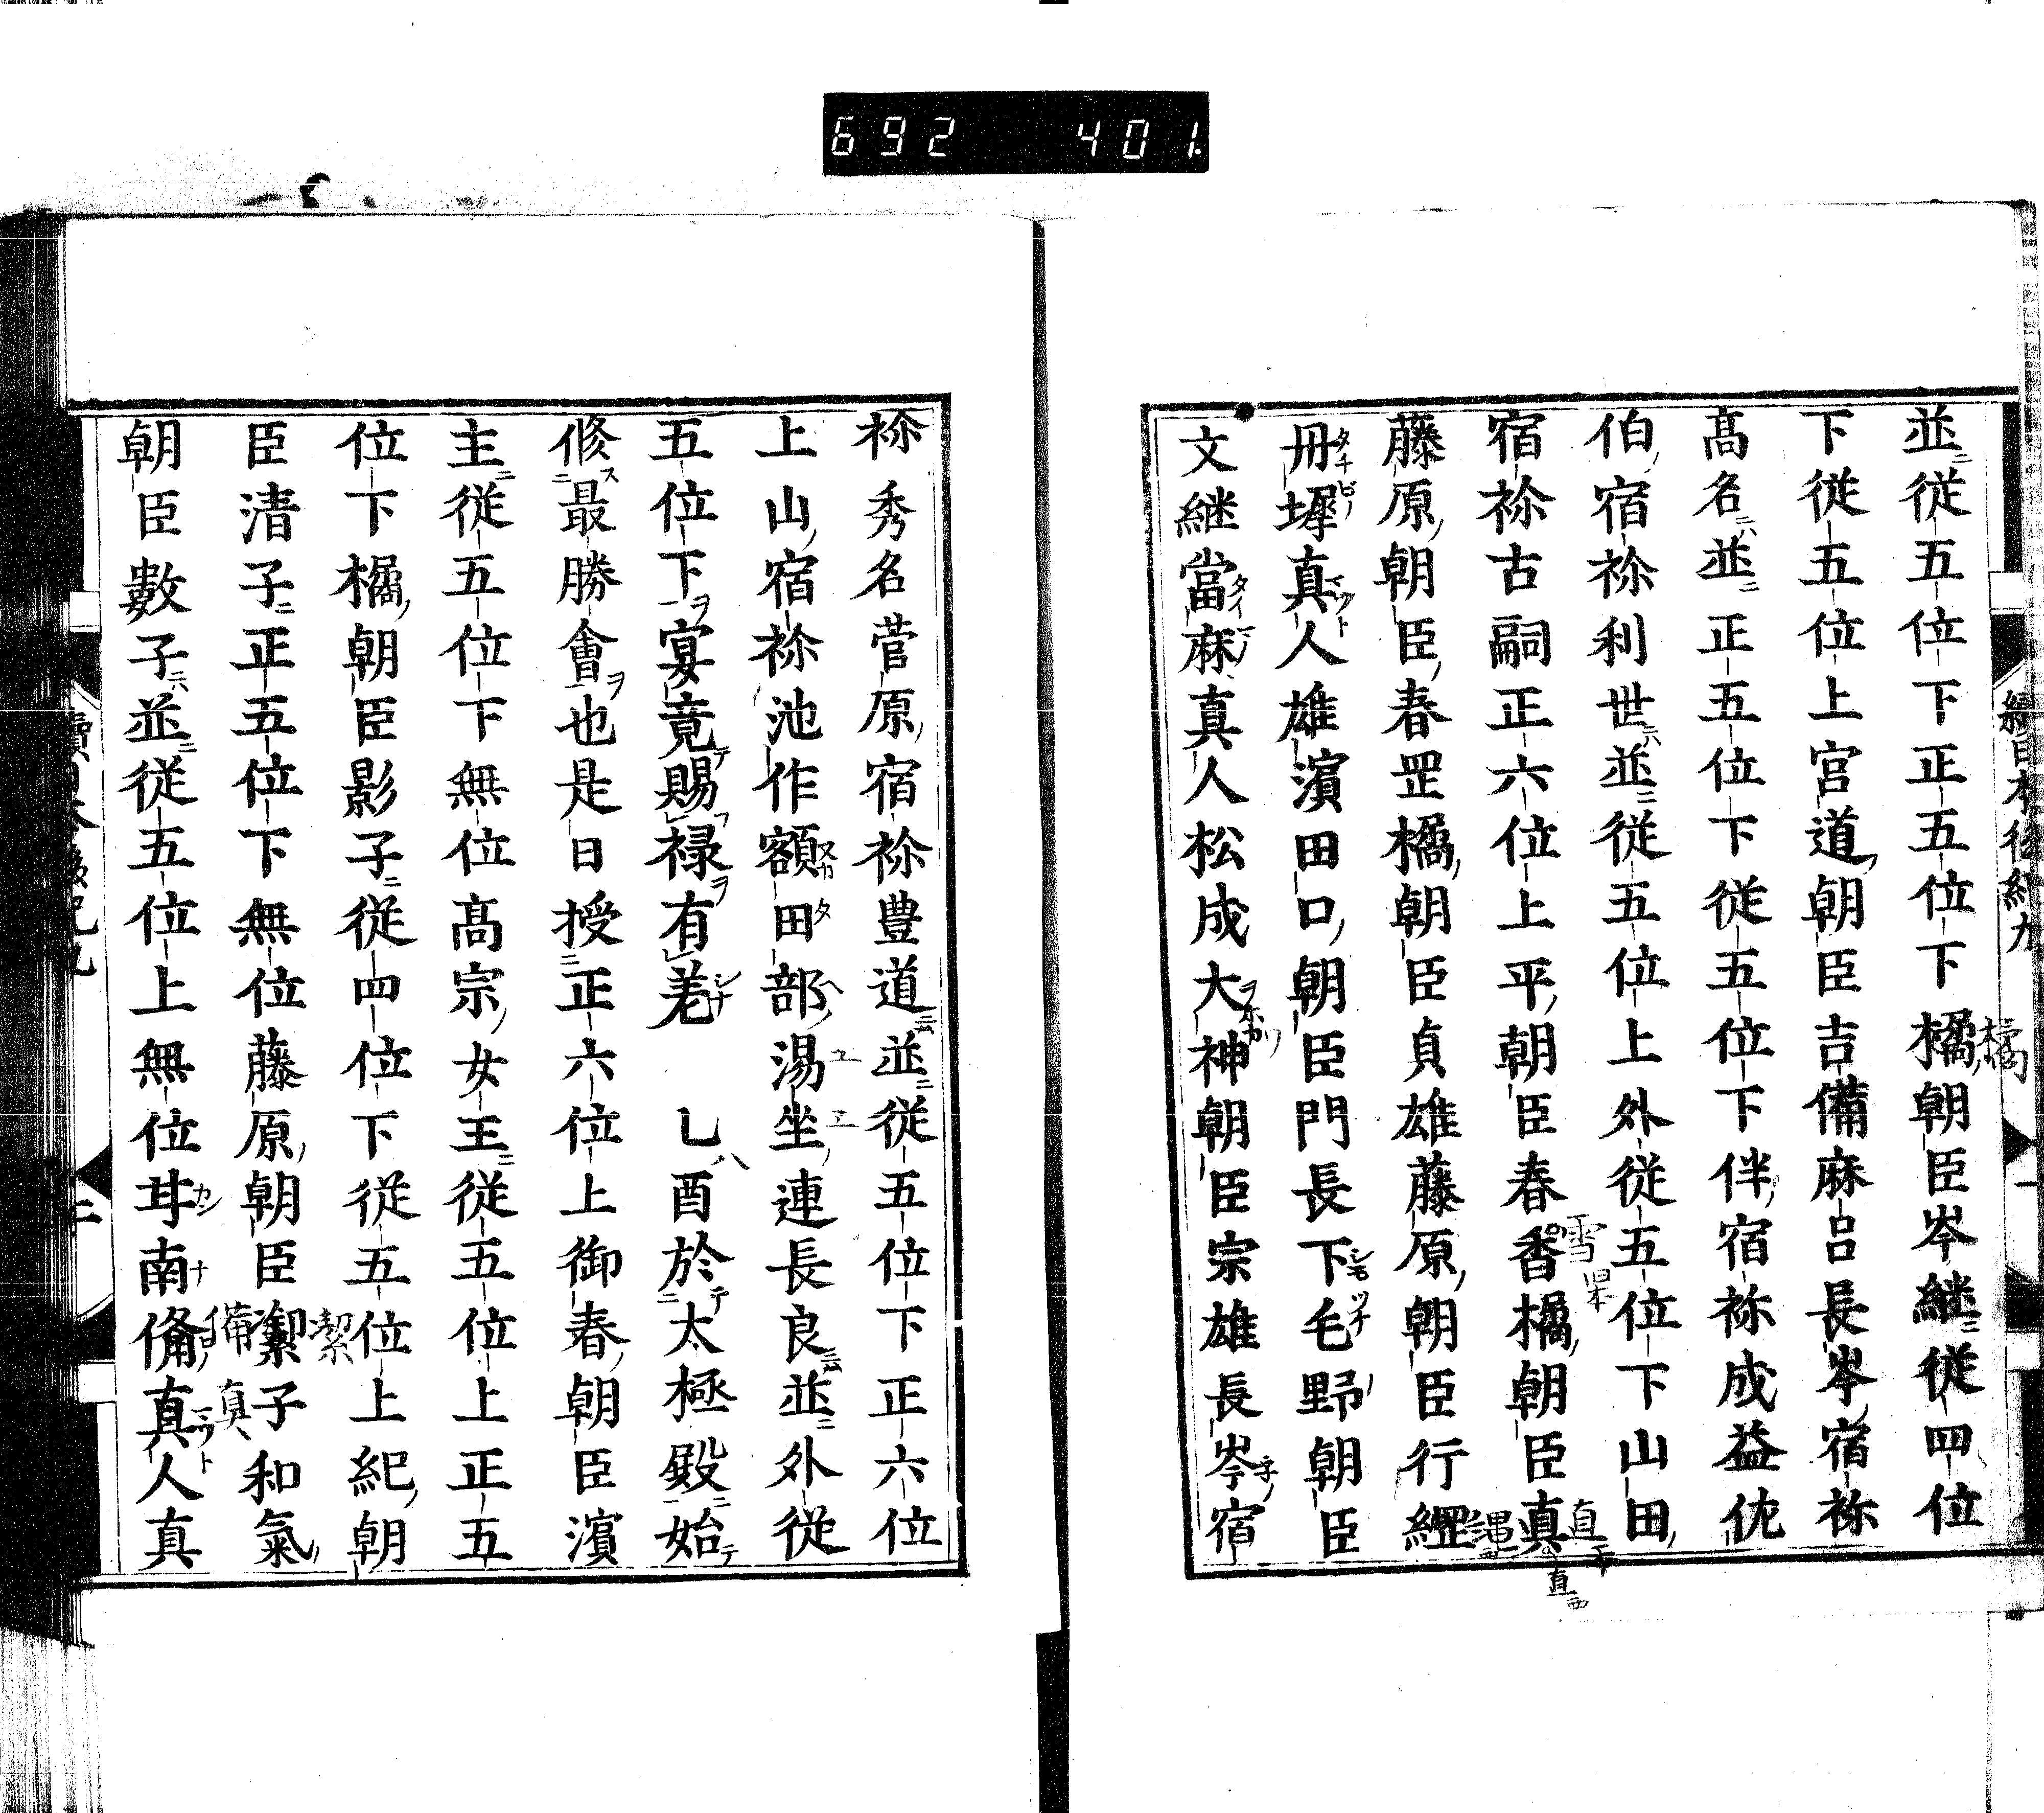 692 401
並従五位下正五位下橘朝臣岑継従四位
下従五位上宮道朝臣吉備麻呂長岑宿祢
髙名並正五位下従五位下伴宿祢成益佐
伯宿祢利世並従五位上外従五位下山田
宿祢古嗣正六位上平朝臣春香橘朝臣真
藤原朝臣春罡橘朝臣貞雄藤原朝臣行縄
丹墀真人雄濱田口朝臣門長下毛野朝臣
文継當麻真人松成大神朝臣宗雄長岑宿
祢秀名菅原宿祢豊道並従五位下正六位
上山宿祢池作額田部湯坐連長良並外従
五位下宴竟賜禄有差 乙酉於太極殿始
修最勝會也是日授正六位上御春朝臣濱
主従五位下無位髙宗女王従五位上正五
位下橘朝臣影子従四位下従五位上紀朝
臣清子正五位下無位藤原朝臣潔子和氣
朝臣數子並従五位上無位甘南備真人真